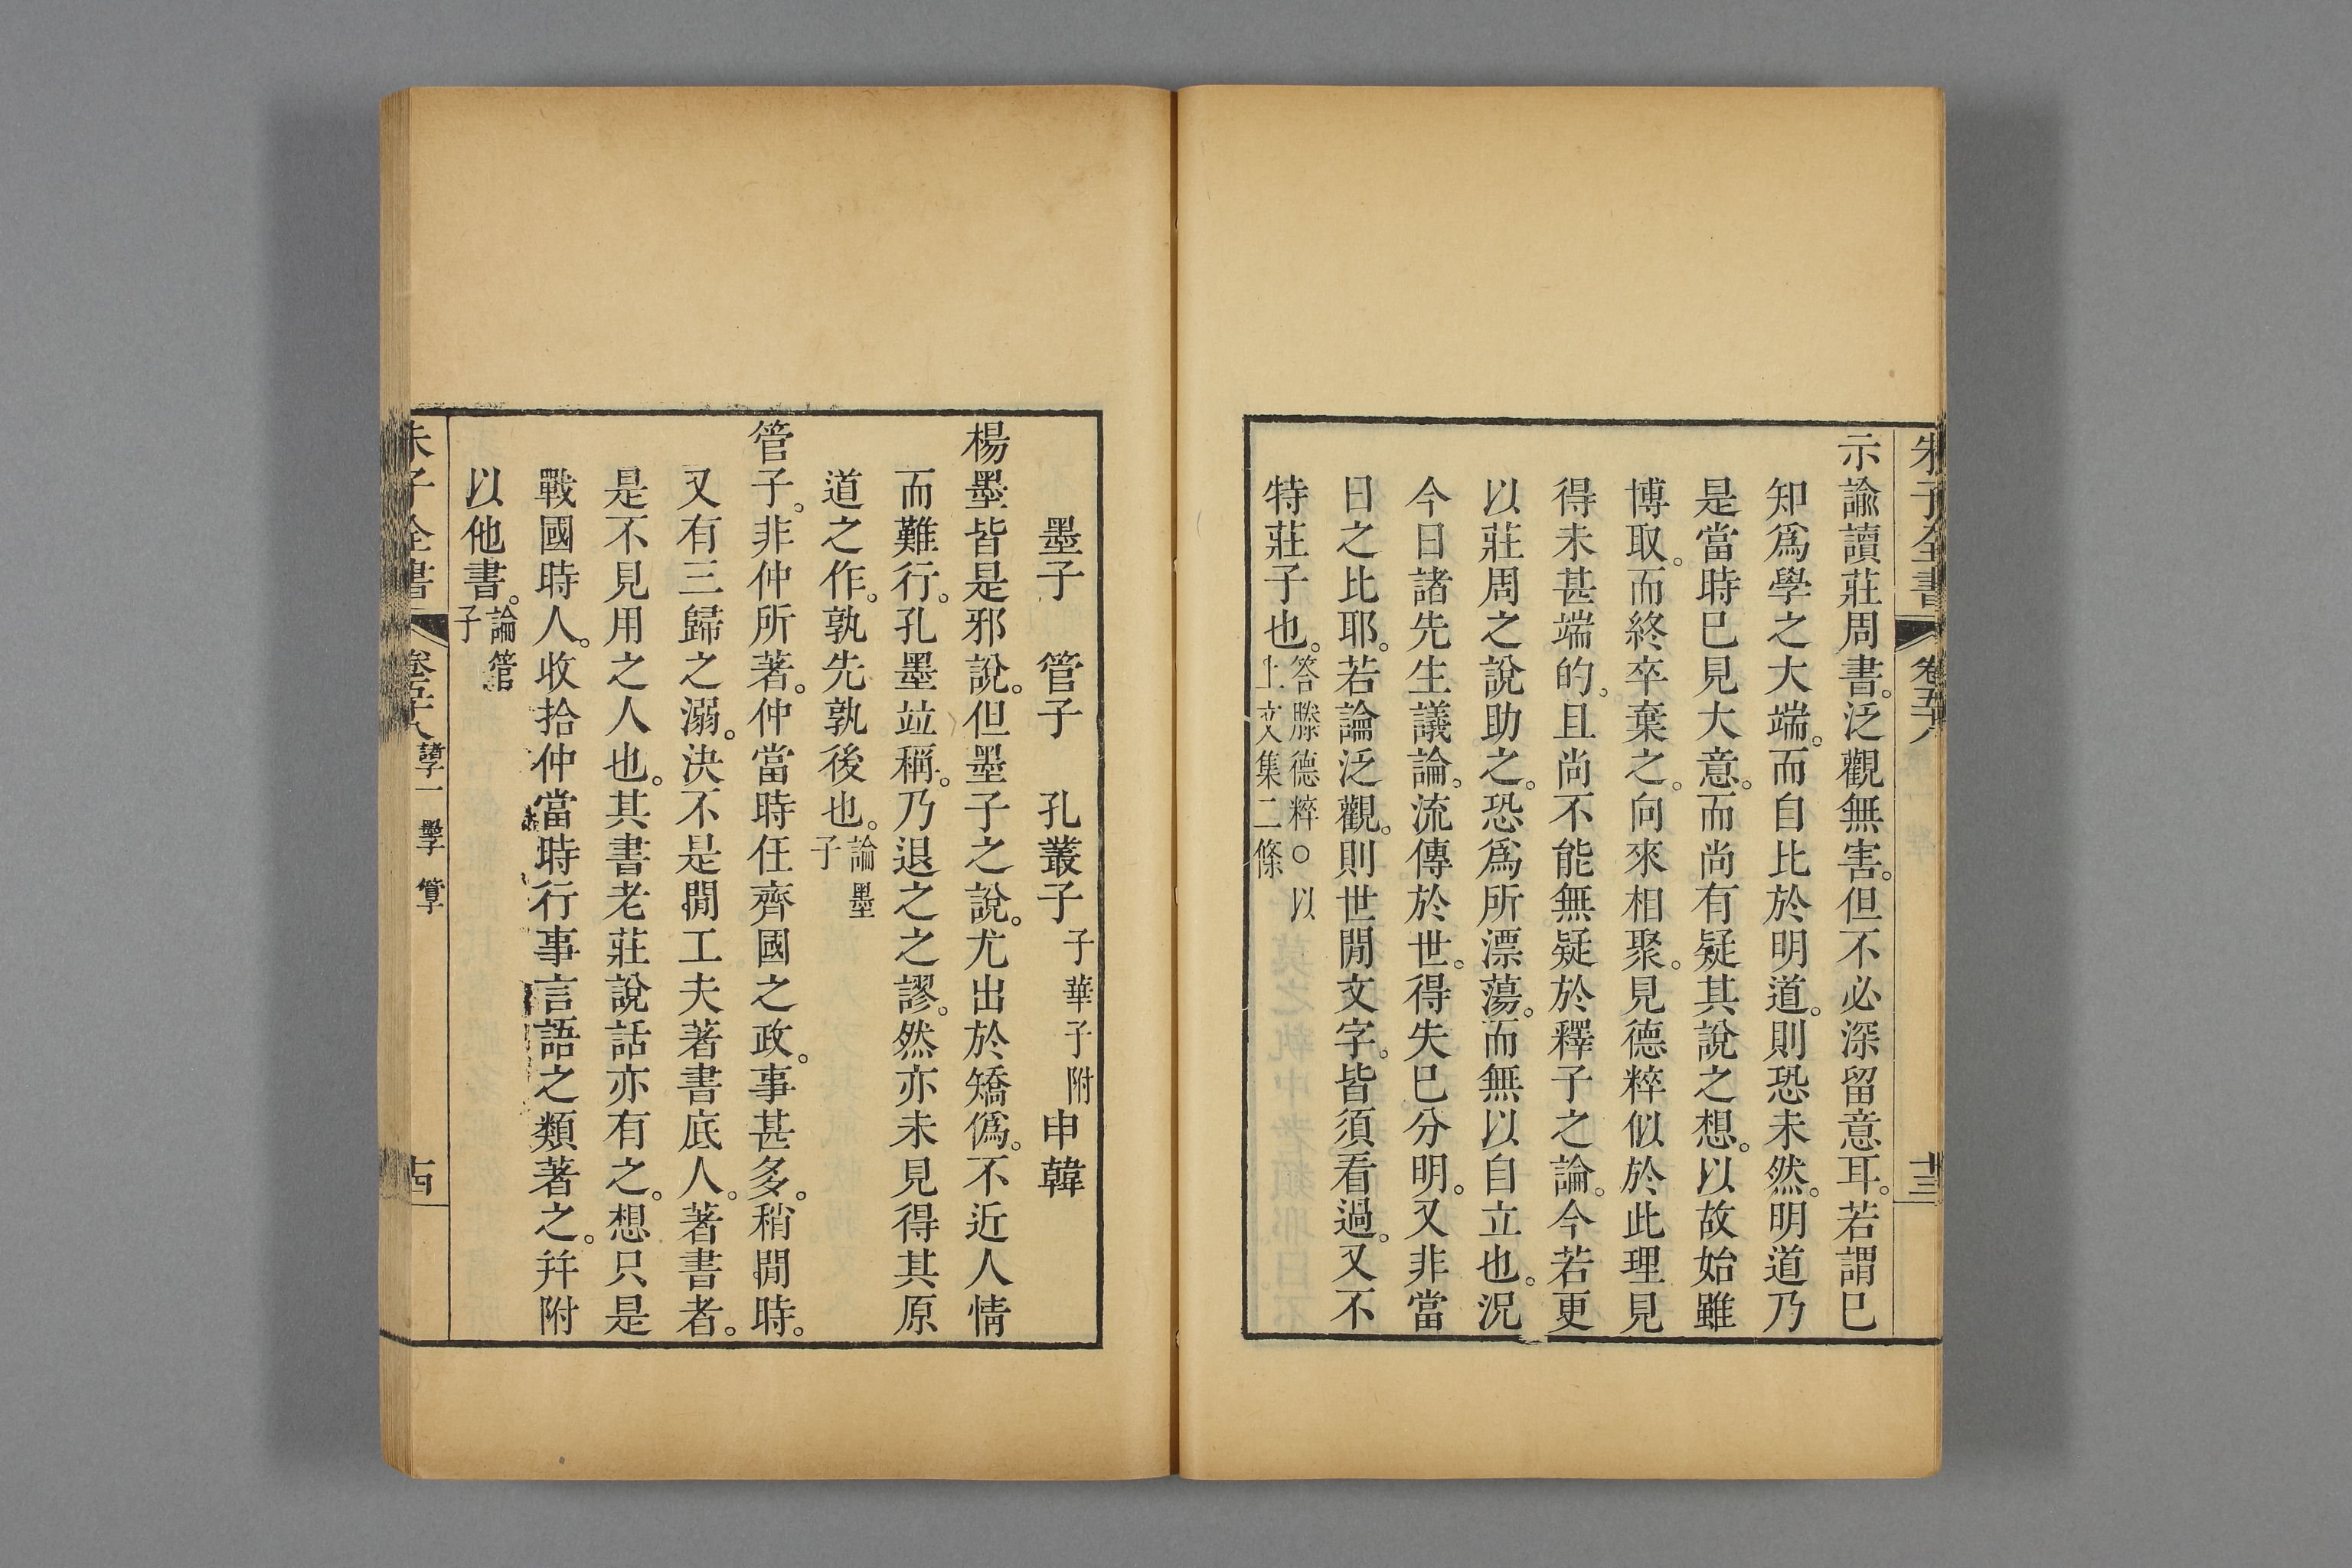 朱子全書 卷五十八 十三
示諭讀莊周書。泛觀無害。但不必深留意耳。若謂已
知爲學之大端。而自比於明道。則恐未然。明道乃
是當時已見大意。而尚有疑其說之想。以故始雖
博取。而終卒棄之。向來相聚。見德粹似於此理見
得未甚端的。且尚不能無疑於釋子之論。今若更
以莊周之說助之。恐爲所漂蕩。而無以自立也。況
今日諸先生議論。流傳於世。得失已分明。又非當
日之比耶。若論泛觀。則世閒文字。皆須看過。又不
特莊子也。答滕德粹○以
上文集二條
墨子 管子 孔叢子子華子附 申韓
楊墨皆是邪說。但墨子之說。尤出於矯僞。不近人情
而難行。孔墨竝稱。乃退之之謬。然亦未見得其原
道之作。孰先孰後也。論墨
子
管子。非仲所著。仲當時任齊國之政。事甚多。稍閒時。
又有三歸之溺。決不是閒工夫著書底人。著書者。
是不見用之人也。其書老莊說話亦有之。想只是
戰國時人。收拾仲當時行事言語之類著之。幷附
以他書。論管
子
朱子全書 卷五十八 諸子一 墨子 管子 十四